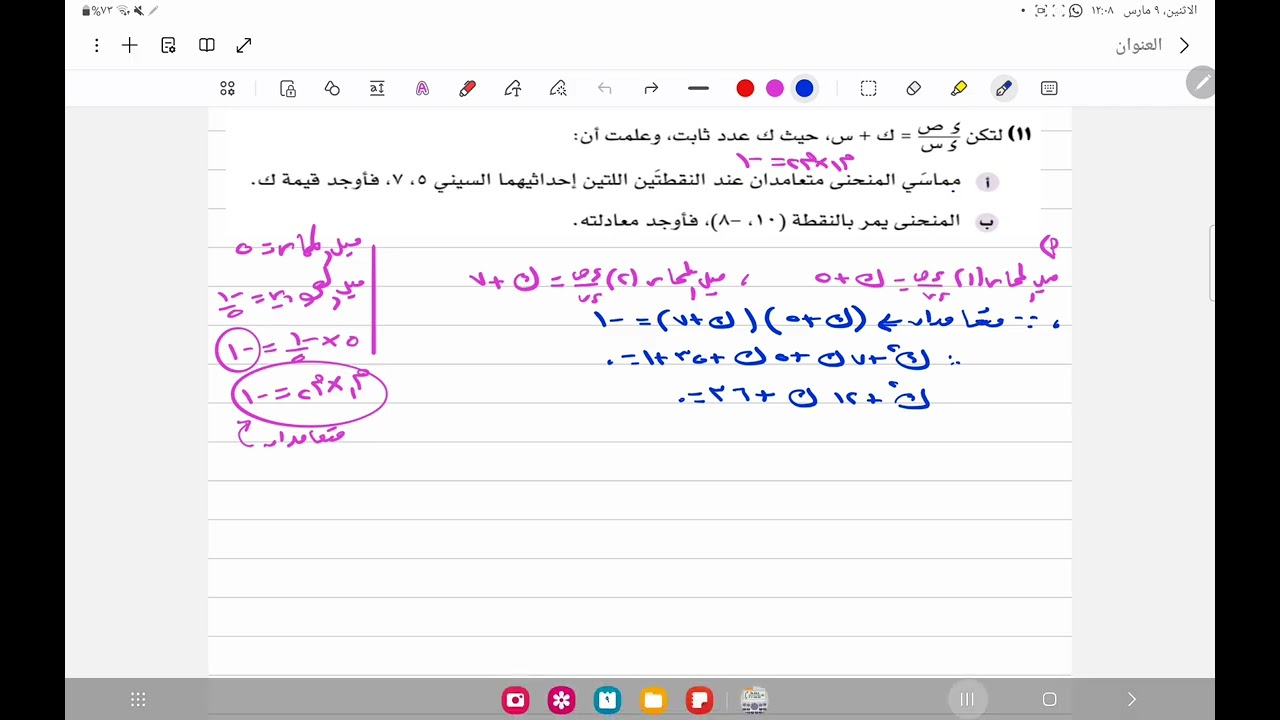 الاثنين، ٩ مارس ١٢:٠٨
٪٧٣
العنوان
١١) لتكن ءص/ءس = ك + س، حيث ك عدد ثابت، وعلمت أن:
م١×م٢ = -١
أ مماسَي المنحنى متعامدان عند النقطتَين اللتين إحداثيهما السيني ٥، ٧، فأوجد قيمة ك.
ب المنحنى يمر بالنقطة (١٠، -٨)، فأوجد معادلته.
ميل المماس = ٥
ميل = -١/٥
٥ × -١/٥ = -١
م١×م٢ = -١
متعامدان
أ)
ميل المماس (١) ءص/ءس = ك + ٥ ، ميل المماس (٢) ءص/ءس = ك + ٧
، ∵ متعامدان ← (ك+٥)(ك+٧) = -١
∴ ك٢ + ٧ك + ٥ك + ٣٥ + ١ = ٠
ك٢ + ١٢ك + ٣٦ = ٠